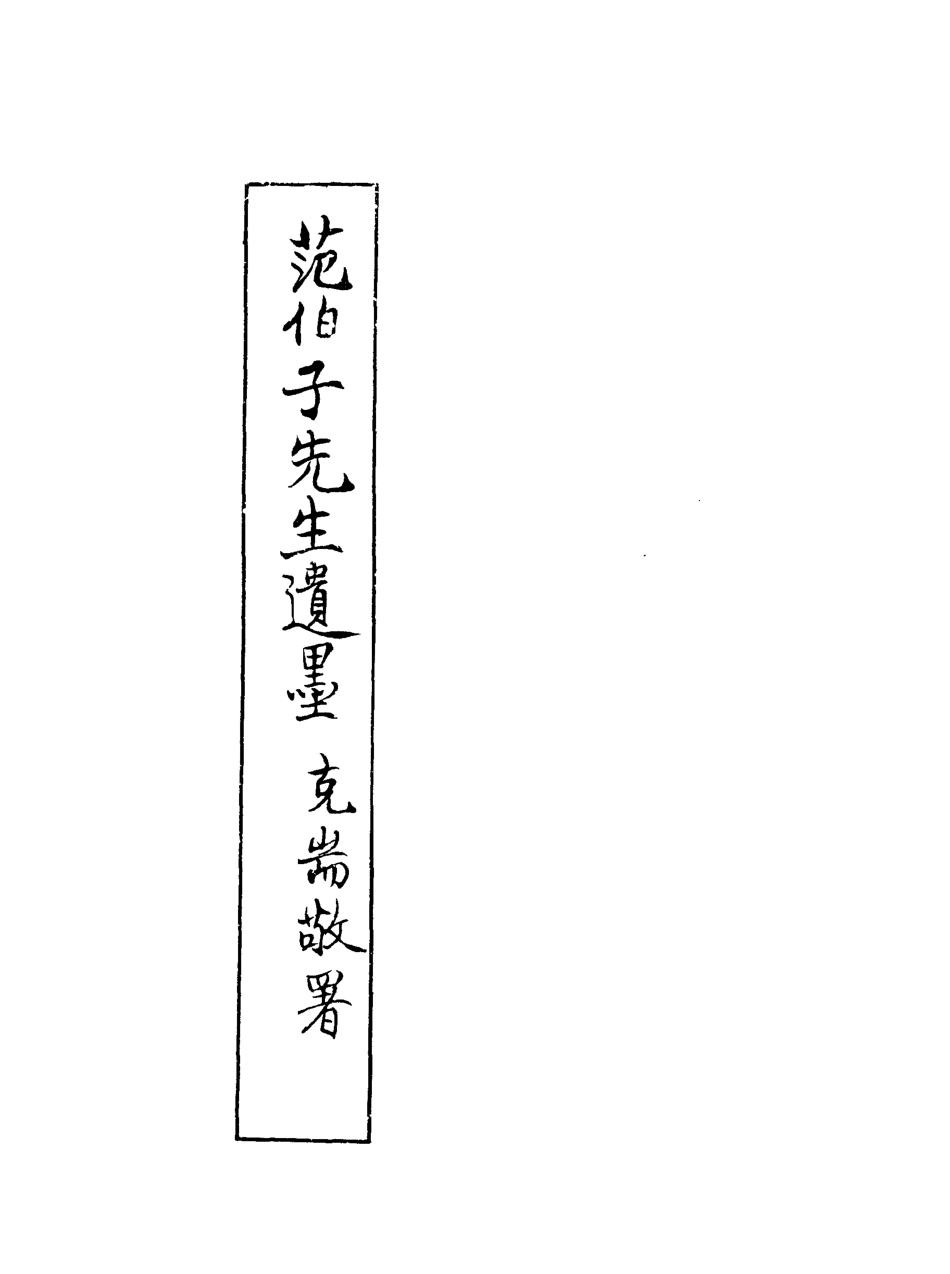 范伯子先生遺墨 克耑敬署